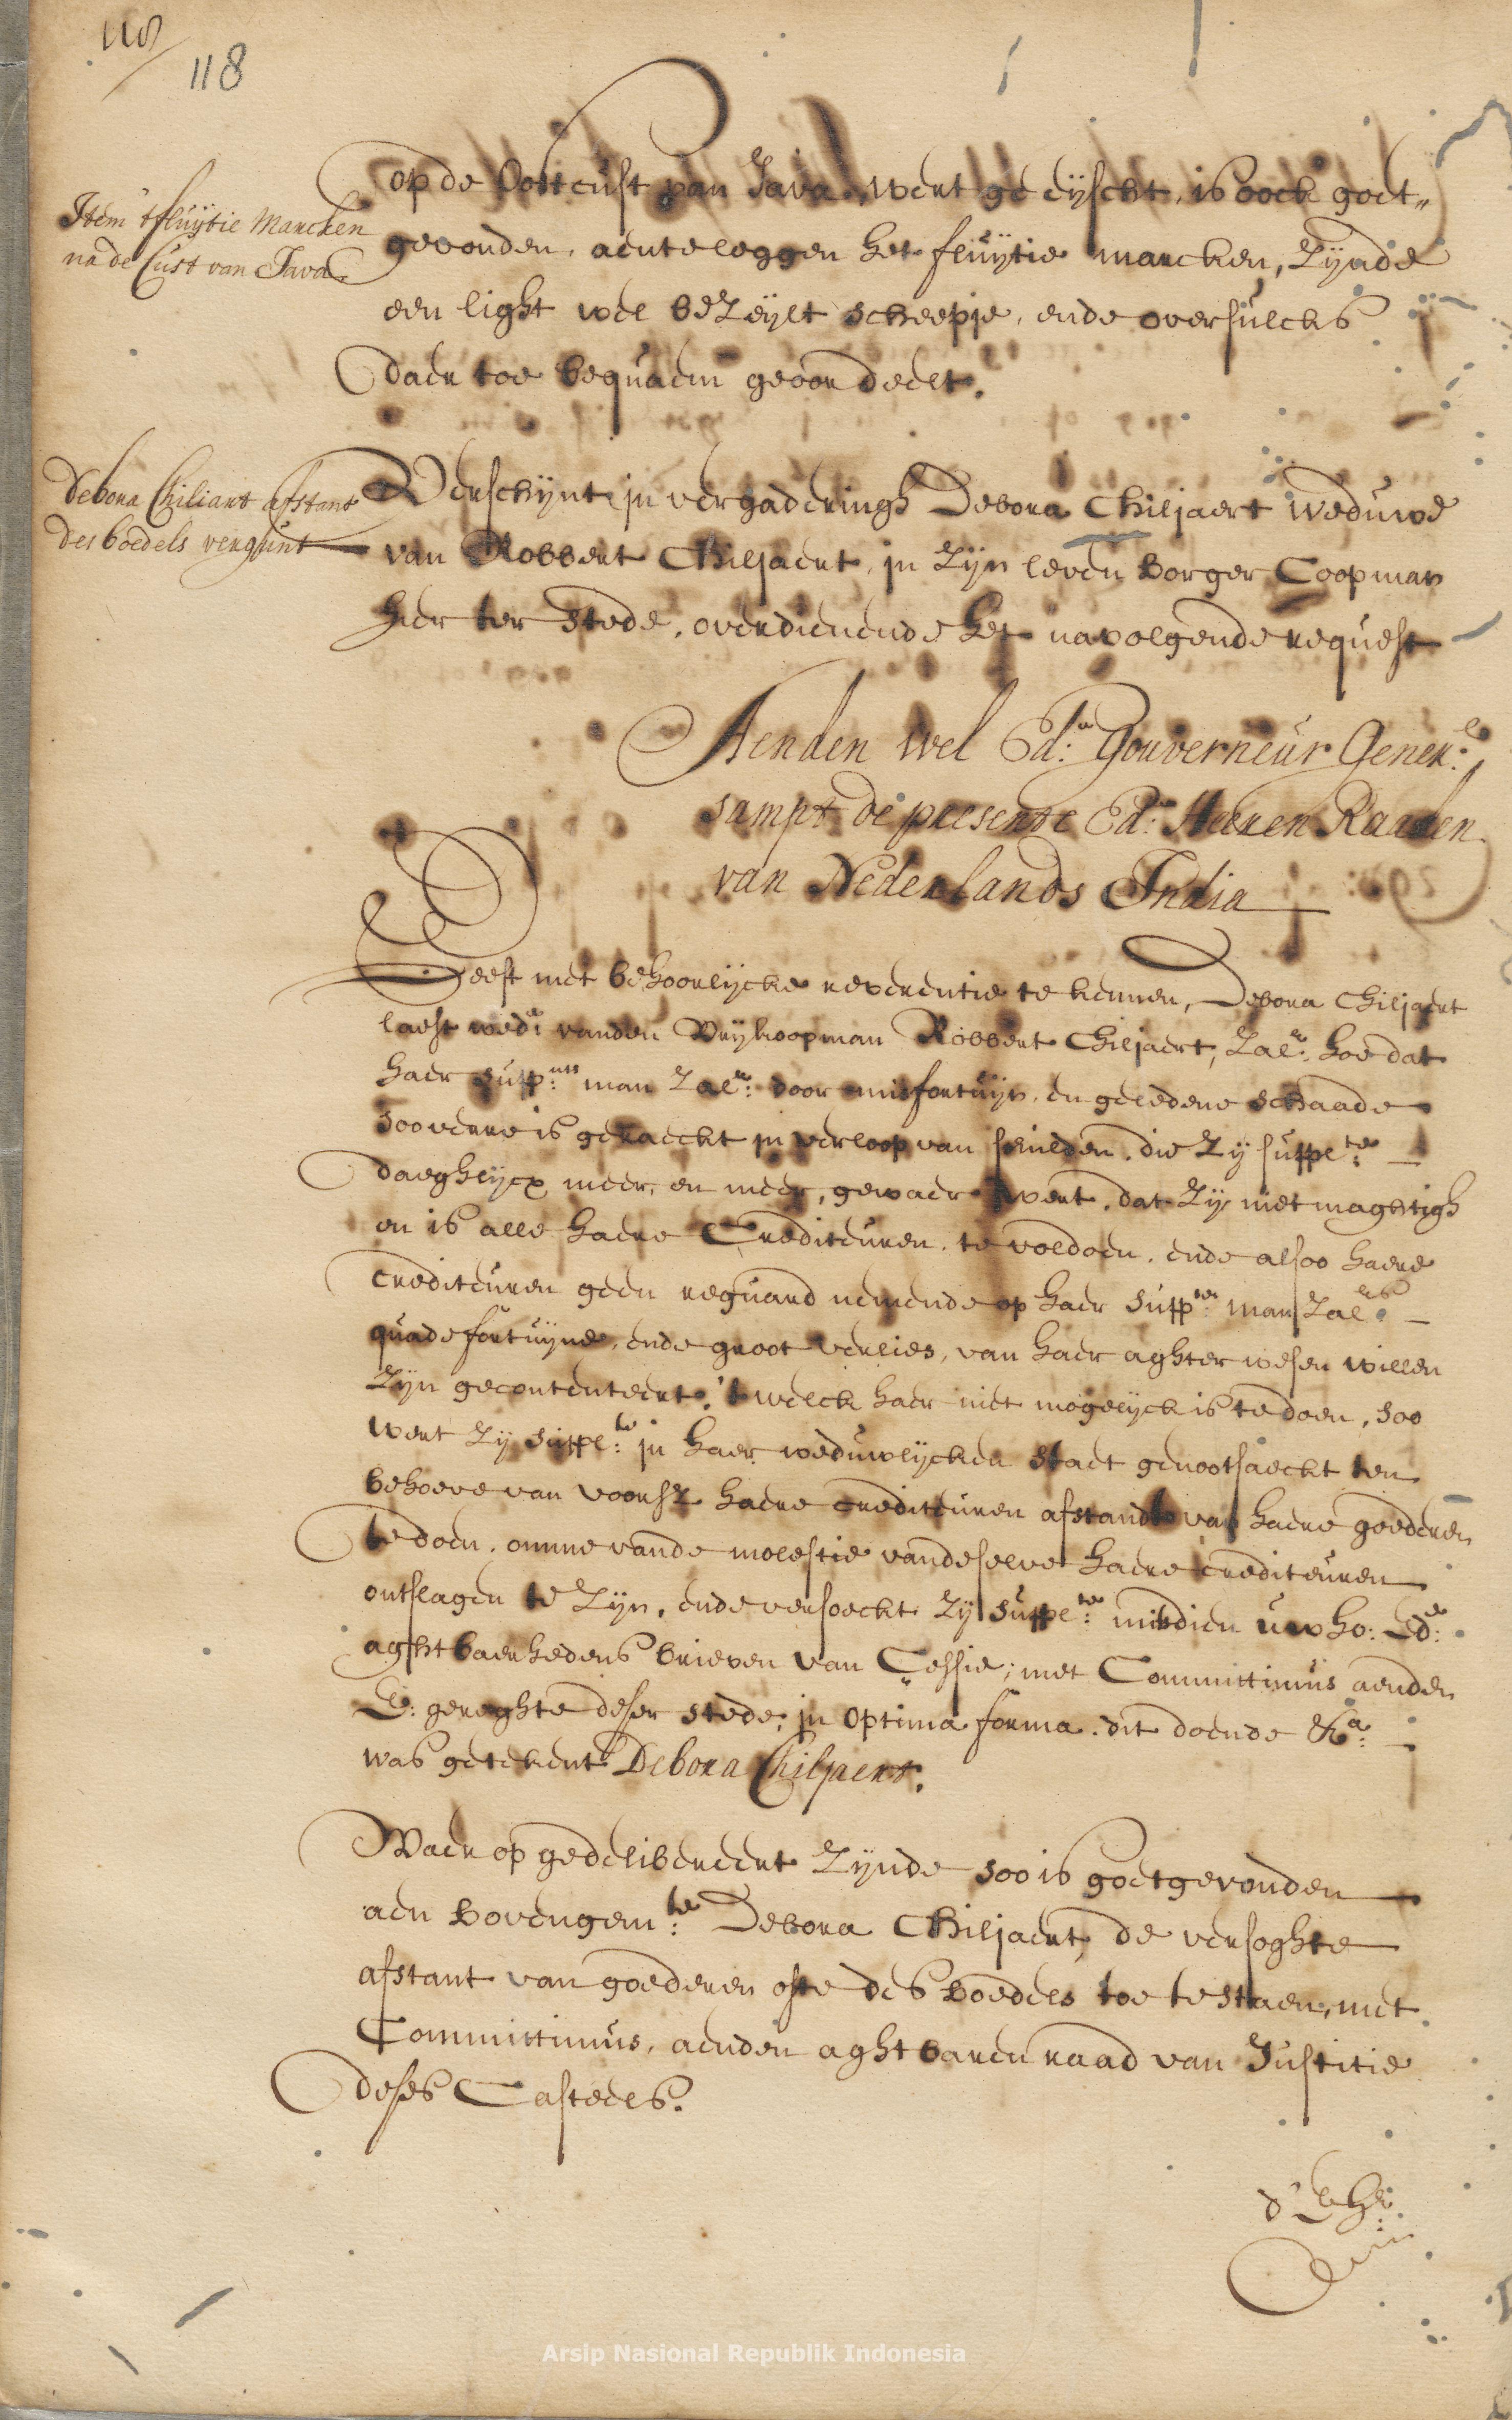 118
118
Item 't fluijtie Marcken
na de Cust van Java
op de Oostcust van Java, wert geeijscht, is oock goet„
gevonden, aenteleggen het fluijtie marcken, zijnde
een light wel bezeijlt scheepje, ende oversulcks
daer toe bequaem geoordeelt.
Debora Chiliart afstant
des boedels vergunt
Verschijnt in vergaderingh Debora Chiljaert weduwe
van Robbert Chiljaert, in zijn leven borger Coopman
hier ter stede, overdienende het navolgende request
Aenden wel Ed:n Gouverneur Gener:l
sampt de presente Ed:n Heeren Raaden
van Nederlands India
Geeft met behoorlijcke reverentie te kennen, Debora Chiljaert
laest wed:e vanden Vrijkoopman Robbert Chiljaert, zal:r hoe dat
haer supp:nts man zal:r door misfortuijn, en geledene schaade
soo verre is geraeckt in verloop van schulden, die zij suppl:te
daeghlijcx meer, en meer, gewaer wert, dat zij niet maghtigh
en is alle haere Crediteuren te voldoen, ende alsoo haere
crediteuren geen reguard nemende op haer supp:ten man zal:rs
quade fortuijne, ende groot verlies, van haer aghterwesen willen
zijn gecontenteert, 't welck haer niet mogelijck is te doen, soo
wert zij suppl:te in haer weduwlijcken staet genootsaeckt ten
behoeve van voorsz haere crediteuren afstandt van haere goederen
te doen, omme vande molestie vandeselve haere crediteuren
ontslagen te zijn, ende versoeckt zij suppl:te midtsdien uw ho: Ed:e
aghtbaerhedens brieven van Cessie, met Committimus aenden
E: gereghte deser stede, in optima forma. dit doende &a:
was getekent Debora Chiljaert.
Waer op gedelibereert zijnde soo is goetgevonden
aen bovengem:te Debora Chiljaert, de versoghte
afstant van goederen ofte des boedels toe te staen, met
Committimus, aenden aghtbaren raad van Justitie
deses Casteels.
d' E hr:
Arsip Nasional Republik Indonesia